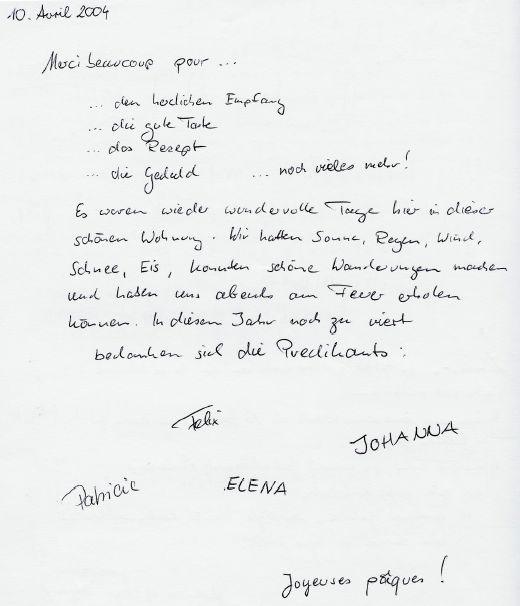 10. April 2004
Merci beaucoup pour ...
... den herzlichen Empfang
... die gute Torte
... das Rezept
... die Geduld ... noch vieles mehr!
Es waren wieder wundervolle Tage hier in dieser
schönen Wohnung. Wir hatten Sonne, Regen, Wind,
Schnee, Eis, konnten schöne Wanderungen machen
und haben uns abends am Feuer erholen
können. In diesem Jahr noch zu viert
bedanken sich die Predikants:
Felix
JOHANNA
Patricie
ELENA
Joyeuses pâques!